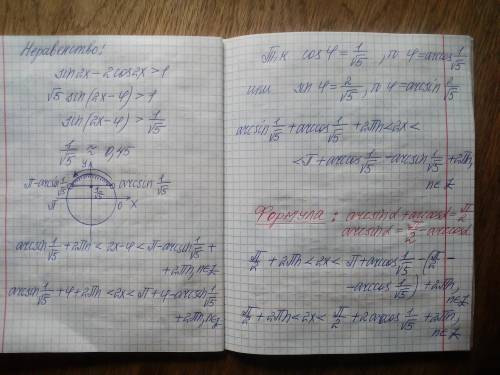 Неравенство:
sin2x - 2cos2x > 1
√5 sin(2x-φ) > 1
sin(2x-φ) > 1/√5
1/√5 ≈ 0,45
y
π-arcsin 1/√5 arcsin 1/√5
1/√5
π 0 x
arcsin 1/√5 + 2πn < 2x-φ < π-arcsin 1/√5 +
+ 2πn, n∈Z
arcsin 1/√5 + φ + 2πn < 2x < π + φ - arcsin 1/√5
+ 2πn, n∈Z
Т.к cosφ = 1/√5, то φ = arccos 1/√5
или sinφ = 2/√5, то φ = arcsin 2/√5
arcsin 1/√5 + arccos 1/√5 + 2πn < 2x <
< π + arccos 1/√5 - arcsin 1/√5 + 2πn,
n∈Z
Формула: arcsinα + arccosα = π/2
arcsinα = π/2 - arccosα
π/2 + 2πn < 2x < π + arccos 1/√5 - (π/2 -
- arccos 1/√5) + 2πn,
n∈Z
π/2 + 2πn < 2x < π/2 + 2arccos 1/√5 + 2πn,
n∈Z